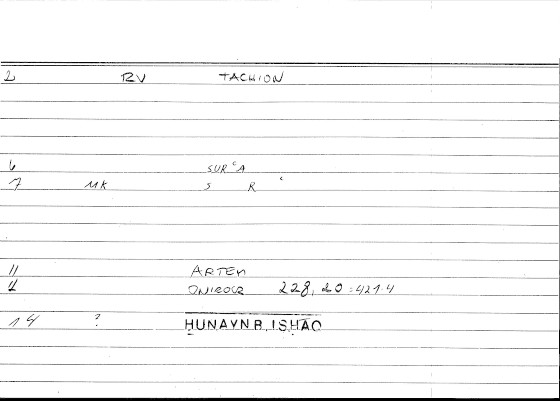 2 RV TACHION
6 SUR A
7 MK S R
11 ARTEM
228, 20 = 421.4
14 ? HUNAYN B. ISHAQ